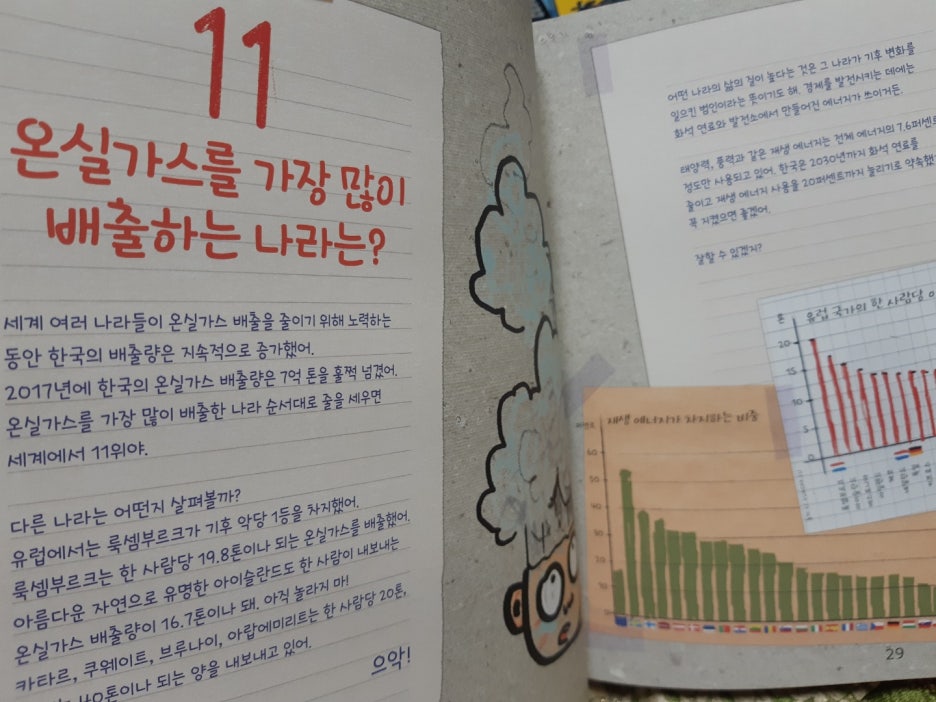 11
온실가스를 가장 많이
배출하는 나라는?
세계 여러 나라들이 온실가스 배출을 줄이기 위해 노력하는
동안 한국의 배출량은 지속적으로 증가했어.
2017년에 한국의 온실가스 배출량은 7억 톤을 훌쩍 넘겼어.
온실가스를 가장 많이 배출한 나라 순서대로 줄을 세우면
세계에서 11위야.
다른 나라는 어떤지 살펴볼까?
유럽에서는 룩셈부르크가 기후 악당 1등을 차지했어.
룩셈부르크는 한 사람당 19.8톤이나 되는 온실가스를 배출했어.
아름다운 자연으로 유명한 아이슬란드도 한 사람이 내보내는
온실가스 배출량이 16.7톤이나 돼. 아직 놀라지 마!
카타르, 쿠웨이트, 브루나이, 아랍에미리트는 한 사람당 20톤,
40톤이나 되는 양을 내보내고 있어.
으악!
어떤 나라의 삶의 질이 높다는 것은 그 나라가 기후 변화를
일으킨 범인이라는 뜻이기도 해. 경제를 발전시키는 데에는
화석 연료와 발전소에서 만들어진 에너지가 쓰이거든.
태양력, 풍력과 같은 재생 에너지는 전체 에너지의 7.6퍼센트
정도만 사용되고 있어. 한국은 2030년까지 화석 연료를
줄이고 재생 에너지 사용을 20퍼센트까지 늘리기로 약속했
꼭 지켰으면 좋겠어.
잘할 수 있겠지?
톤
유럽 국가의 한 사람당
20
15
10
5
0
재생 에너지가 차지하는 비중
60
50
40
30
20
10
29